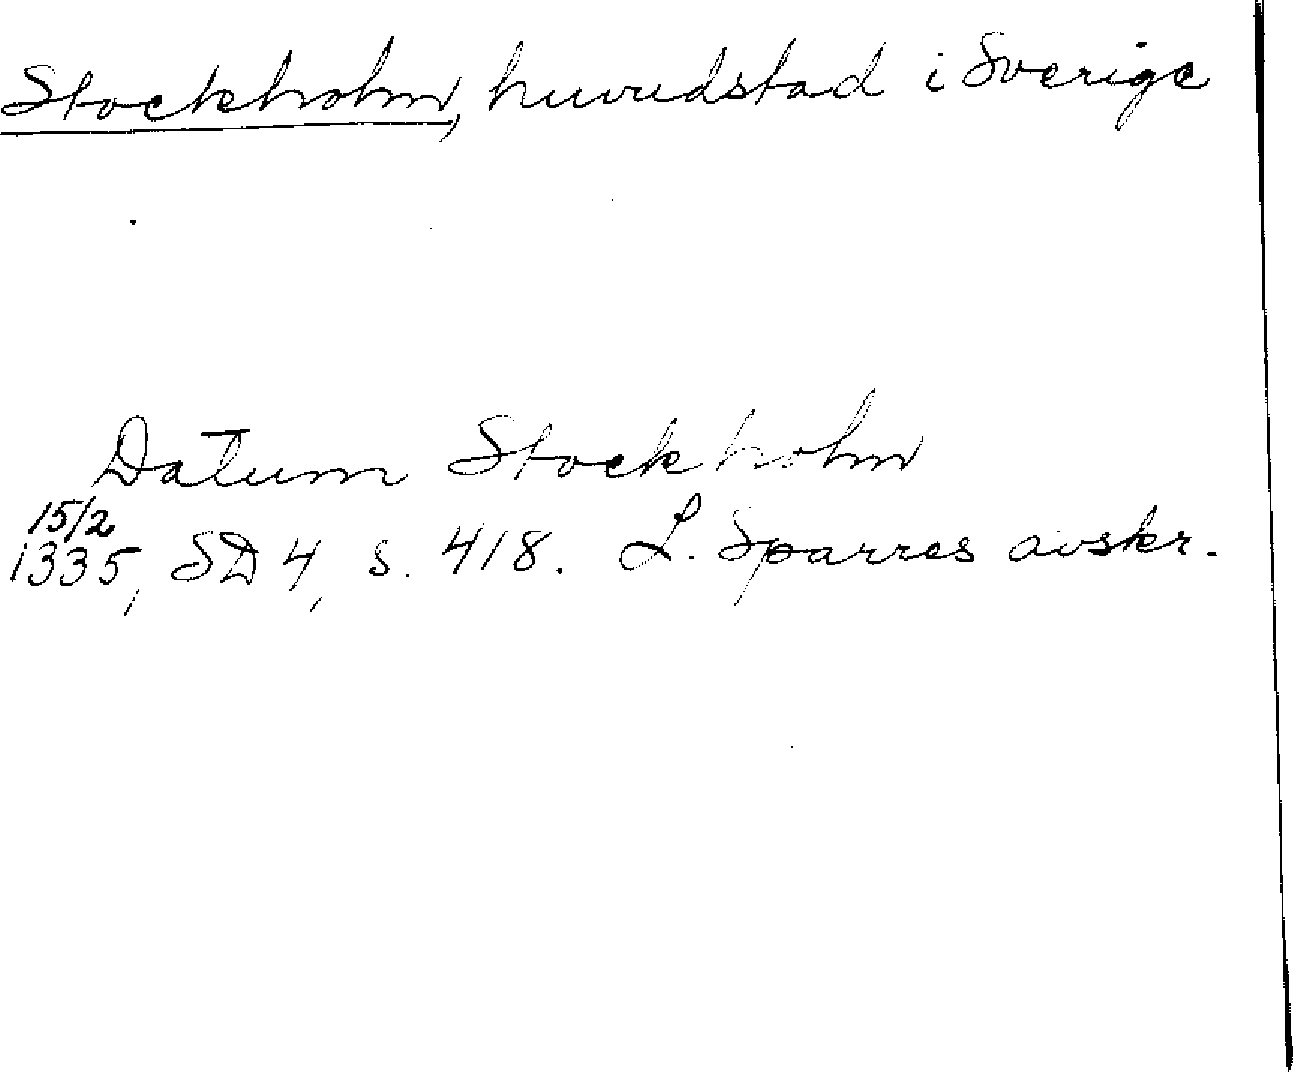 Stockholm, huvudstad i Sverige
Datum Stockholm
15/2
1335, SD 4, s. 418. L. Sparres avskr.